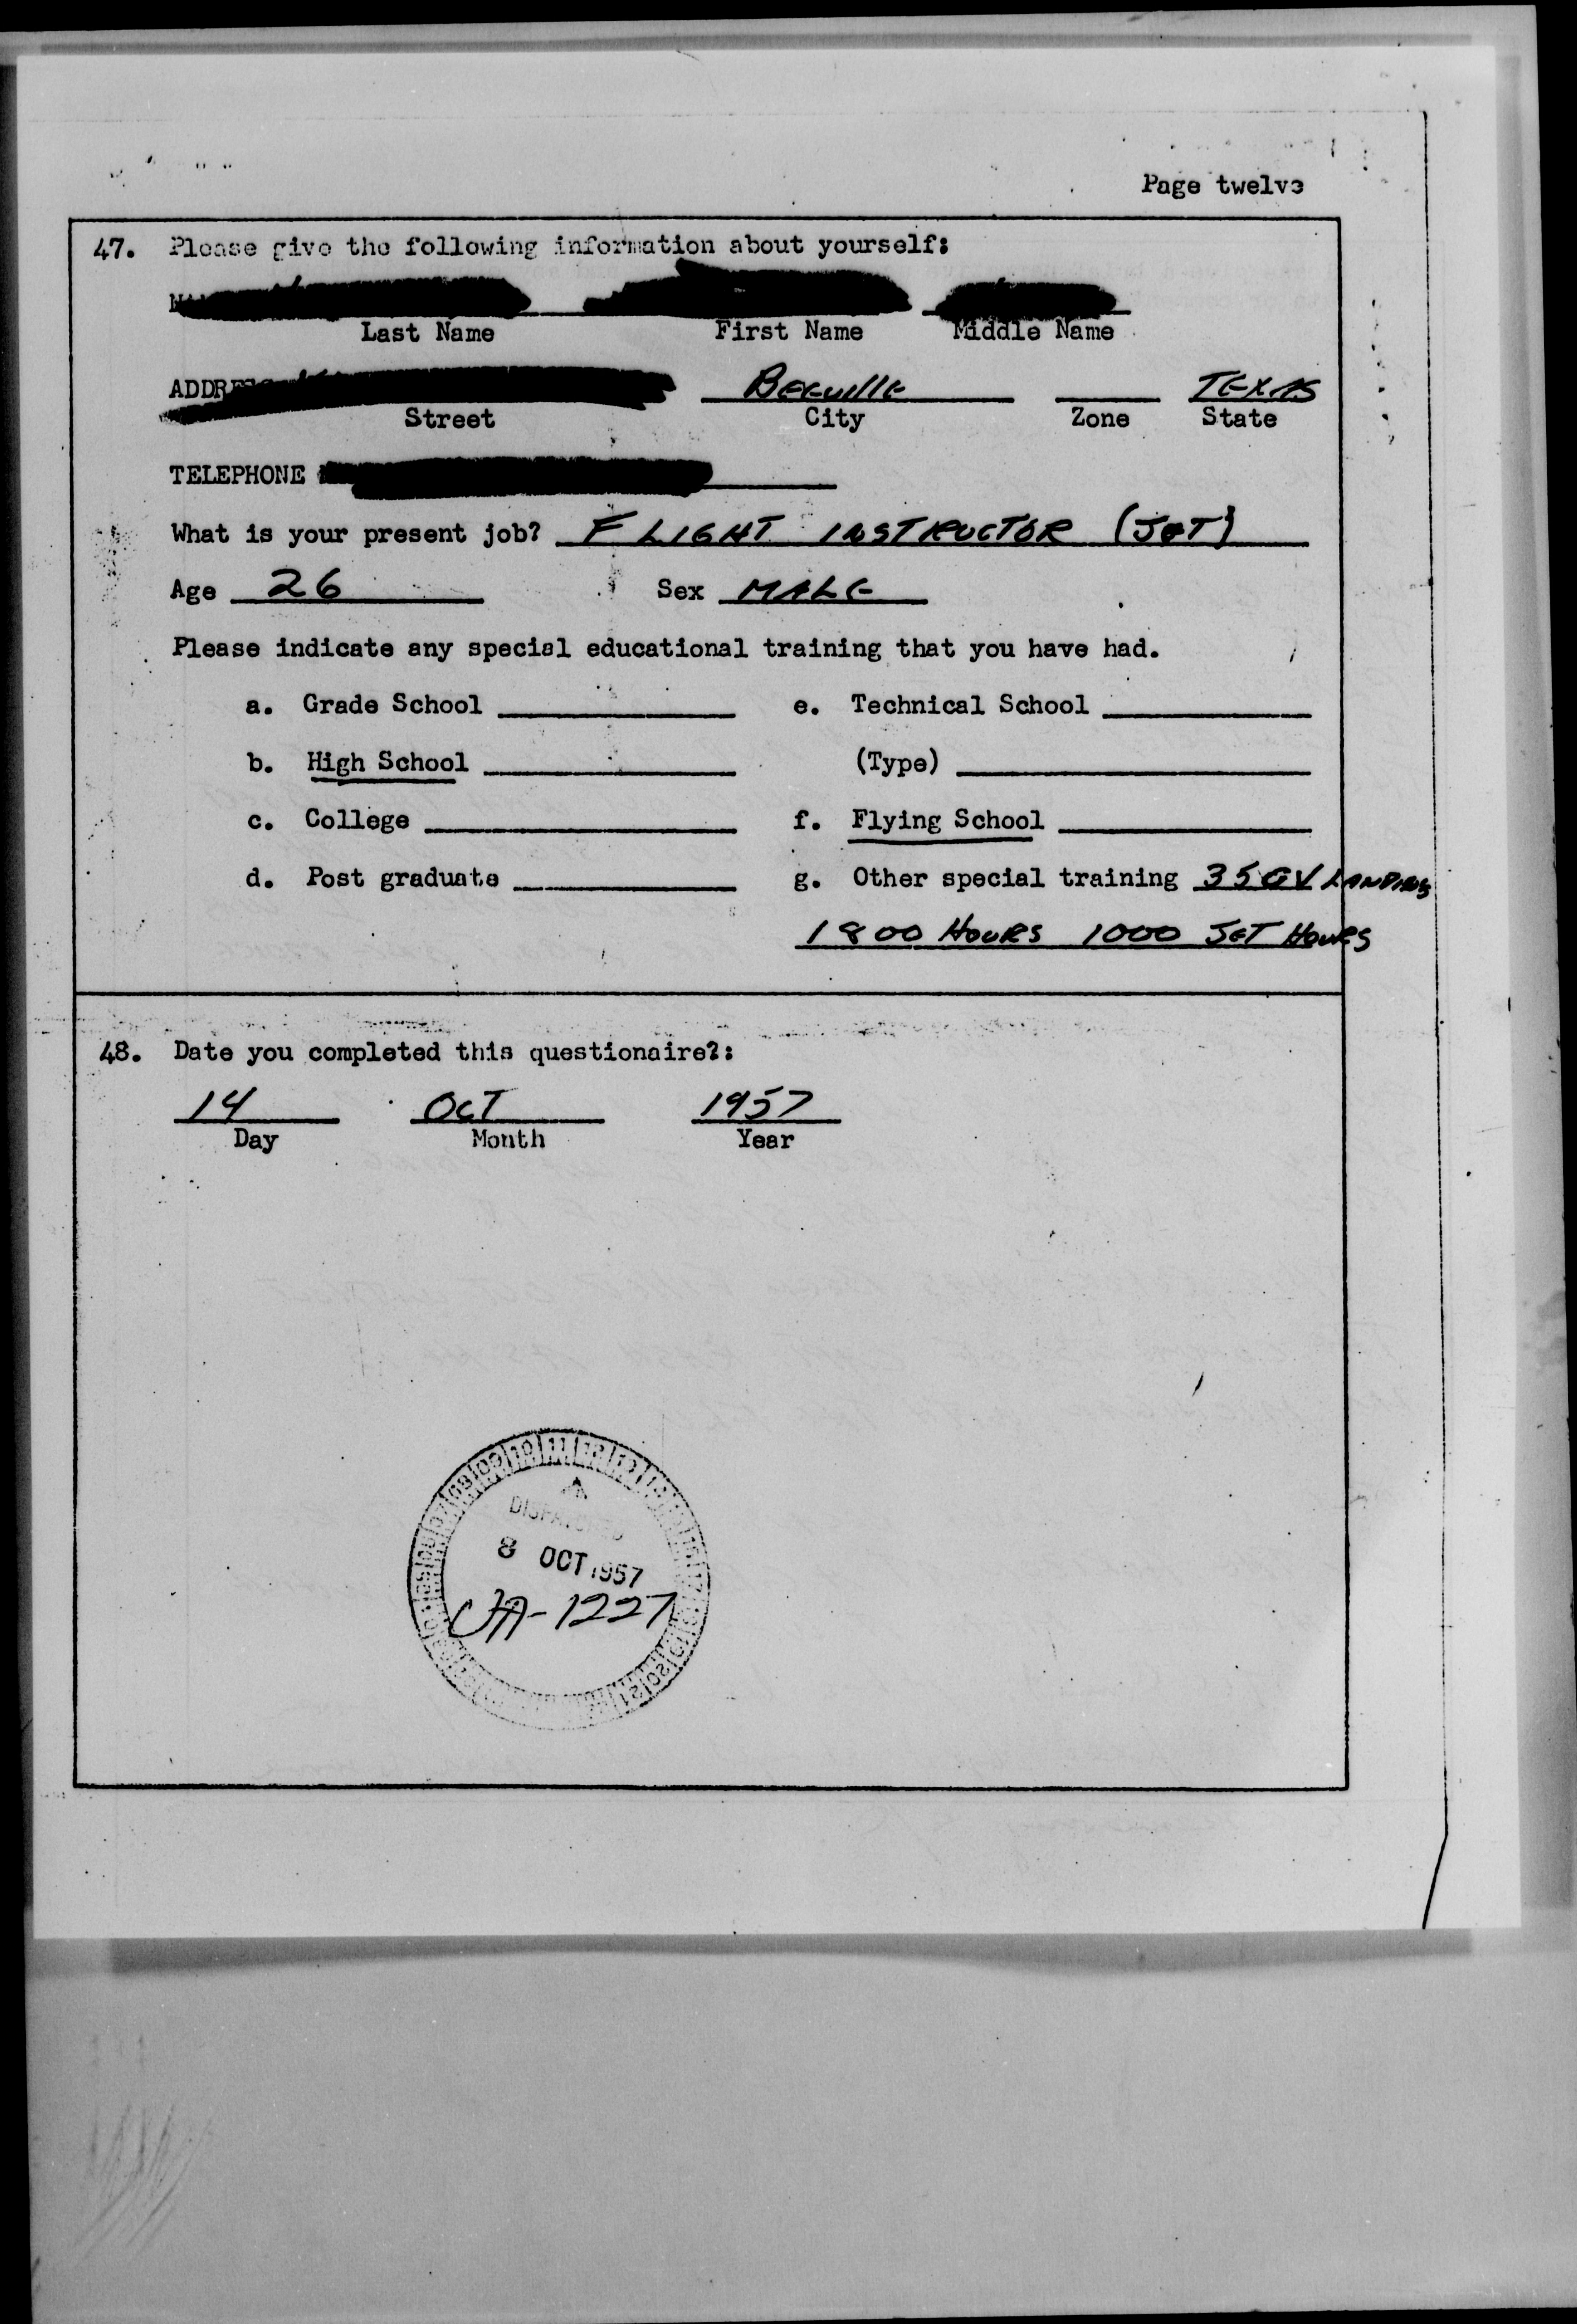 Page twelve
47. Please give the following information about yourself:
Last Name First Name Middle Name
ADDRE Beeville TEXAS
Street City Zone State
TELEPHONE
What is your present job? FLIGHT INSTRUCTOR (JET)
Age 26 Sex MALE
Please indicate any special educational training that you have had.
a. Grade School e. Technical School
b. High School (Type)
c. College f. Flying School
d. Post graduate g. Other special training 35 CV LANDINGS
1800 HOURS 1000 JET HOURS
48. Date you completed this questionaire?:
14 OCT 1957
Day Month Year
DISPATCHED
8 OCT 1957
UA-1227